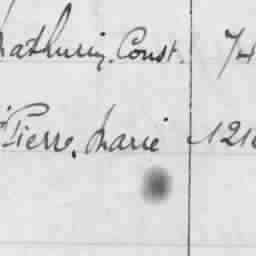 Mathurin. Const. 74
Pierre. Marie 121